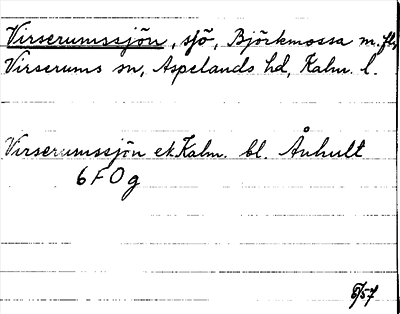 Virserumssjön, sjö, Björkmossa m.fl.
Virserums sn, Aspelands hd, Kalm. l.
Virserumssjön ek.Kalm. bl. Ånhult
6 F 0 g
5/57